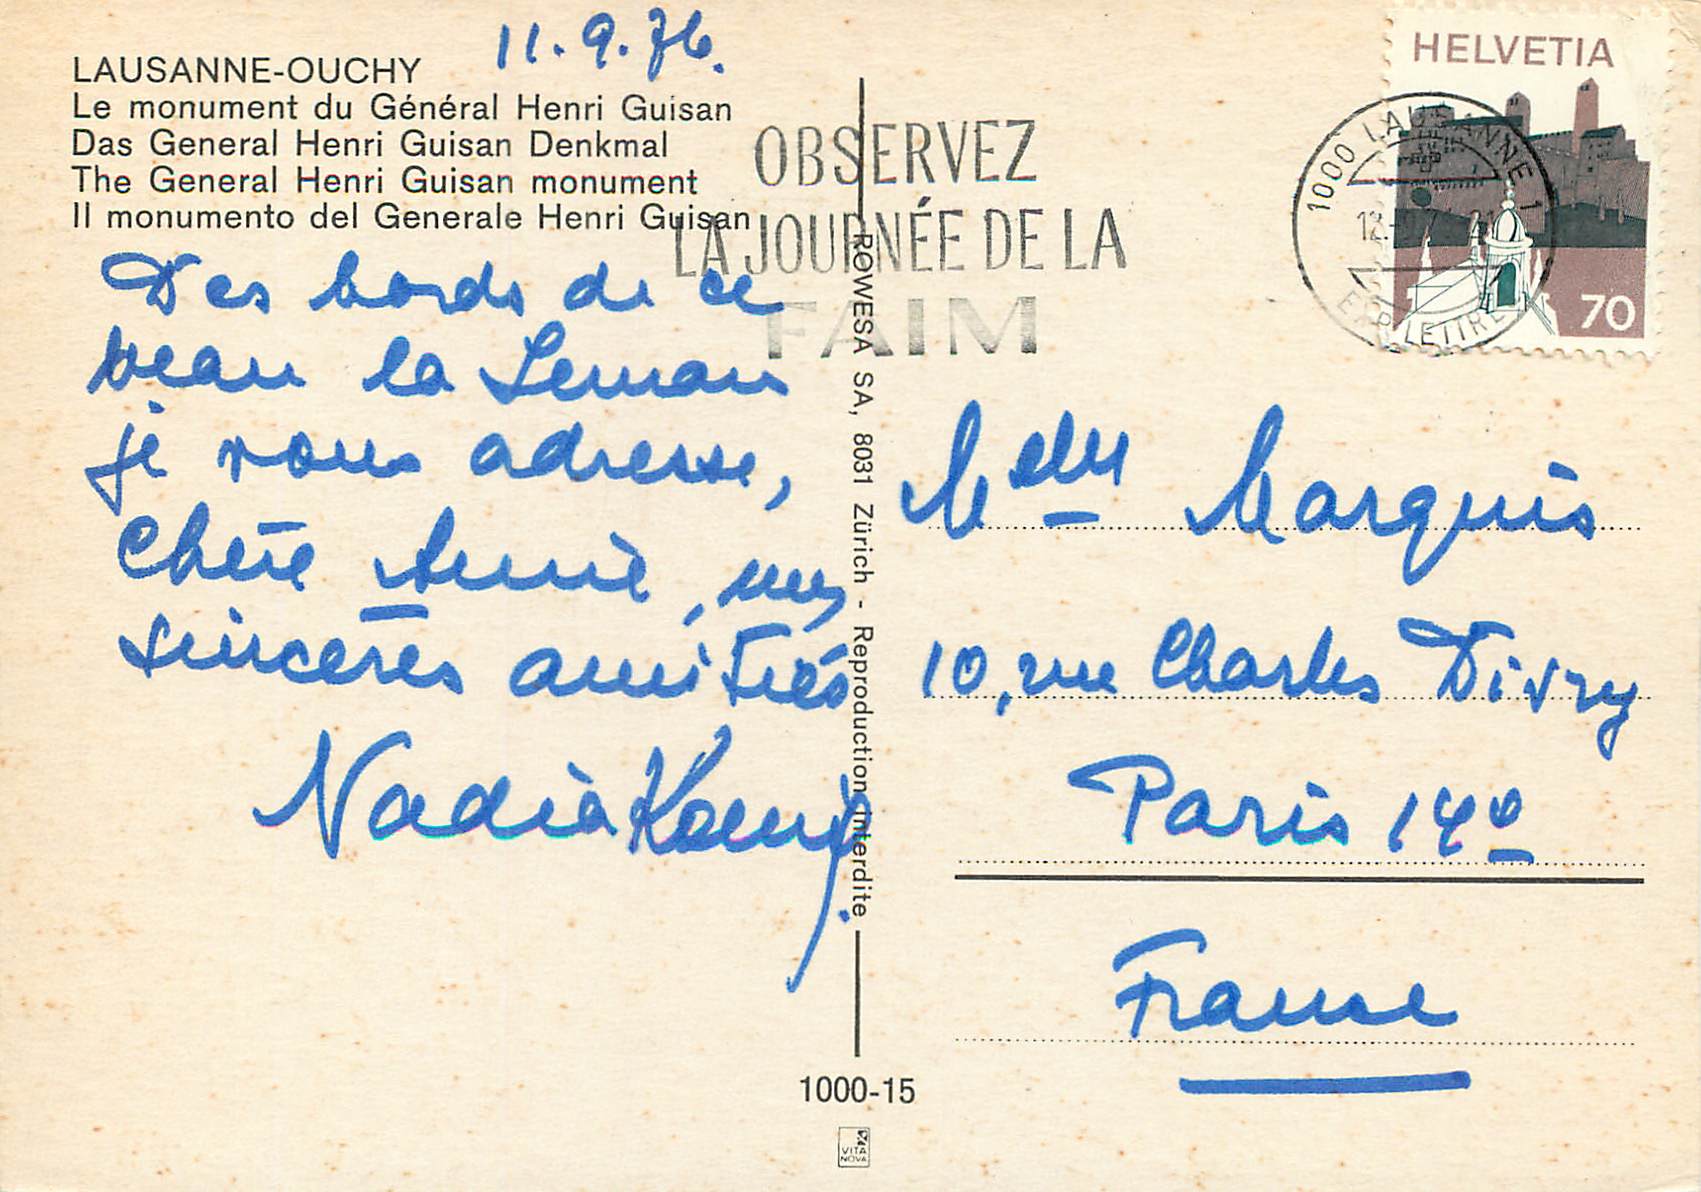 11.9.76.
LAUSANNE-OUCHY
Le monument du Général Henri Guisan
Das General Henri Guisan Denkmal
The General Henri Guisan monument
Il monumento del Generale Henri Guisan
Des bords de ce
beau lac Leman
je vous adresse,
chère Annie, mes
sincères amitiés
Nadia
OBSERVEZ
LA JOURNÉE DE LA
FAIM
HELVETIA
70
1000 LAUSANNE 1
EXP. LETTRES
ROWESA SA, 8031 Zürich - Reproduction interdite
Marquis
10, rue Charles Divry
Paris 14e
France
1000-15
VITA
NOVA